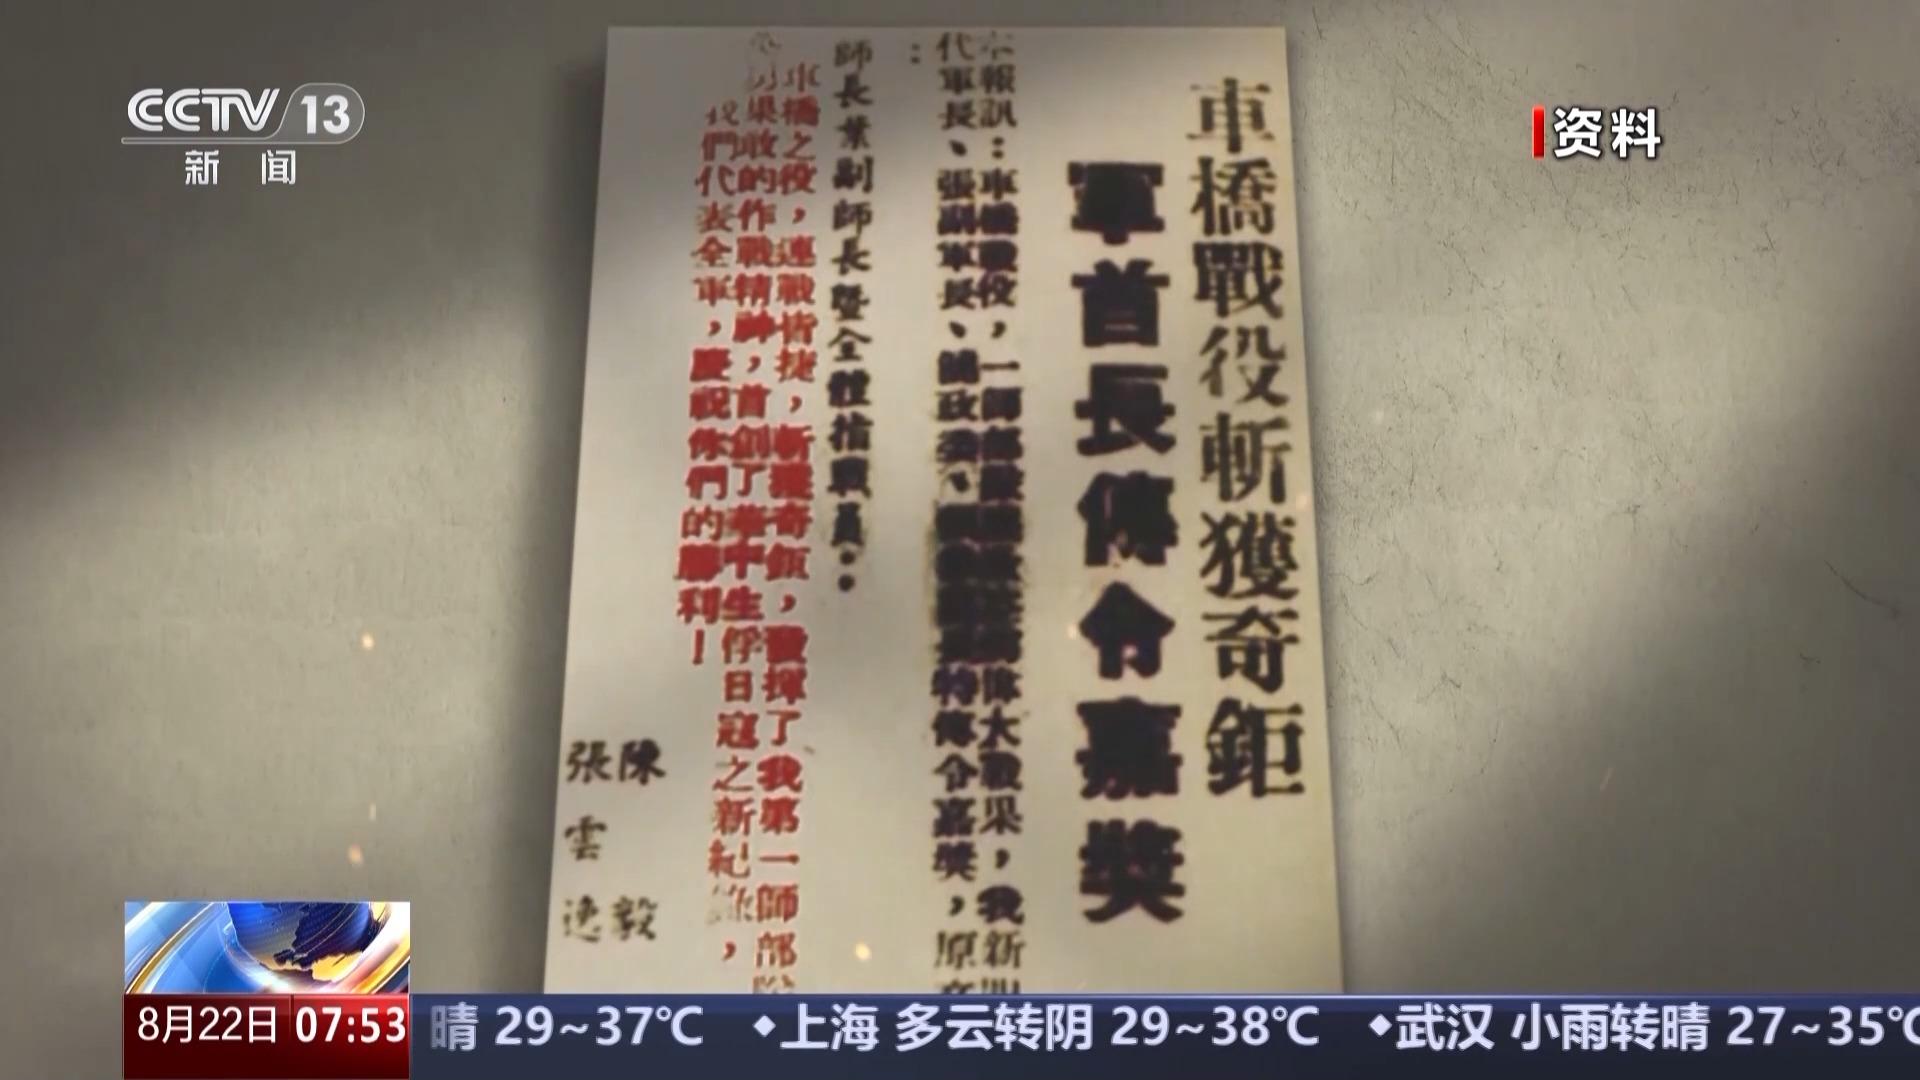 CCTV 13
新闻
资料
車橋戰役斬獲奇鉅
軍首長傳令嘉獎
本報訊：車橋戰役，一師部隊獲致偉大戰果，我新四
代軍長、張副軍長、饒政委、特傳令嘉獎，原文
：
師長葉副師長暨全體指戰員：
車橋之役，連戰皆捷，斬獲奇鉅，發揮了我第一師部隊
果敢的作戰精神，首創了華中生俘日寇之新紀錄，
我們代表全軍，慶祝你們的勝利！
陳 毅
張雲逸
8月22日 07:53
晴 29~37℃ ◆上海 多云转阴 29~38℃ ◆武汉 小雨转晴 27~35℃